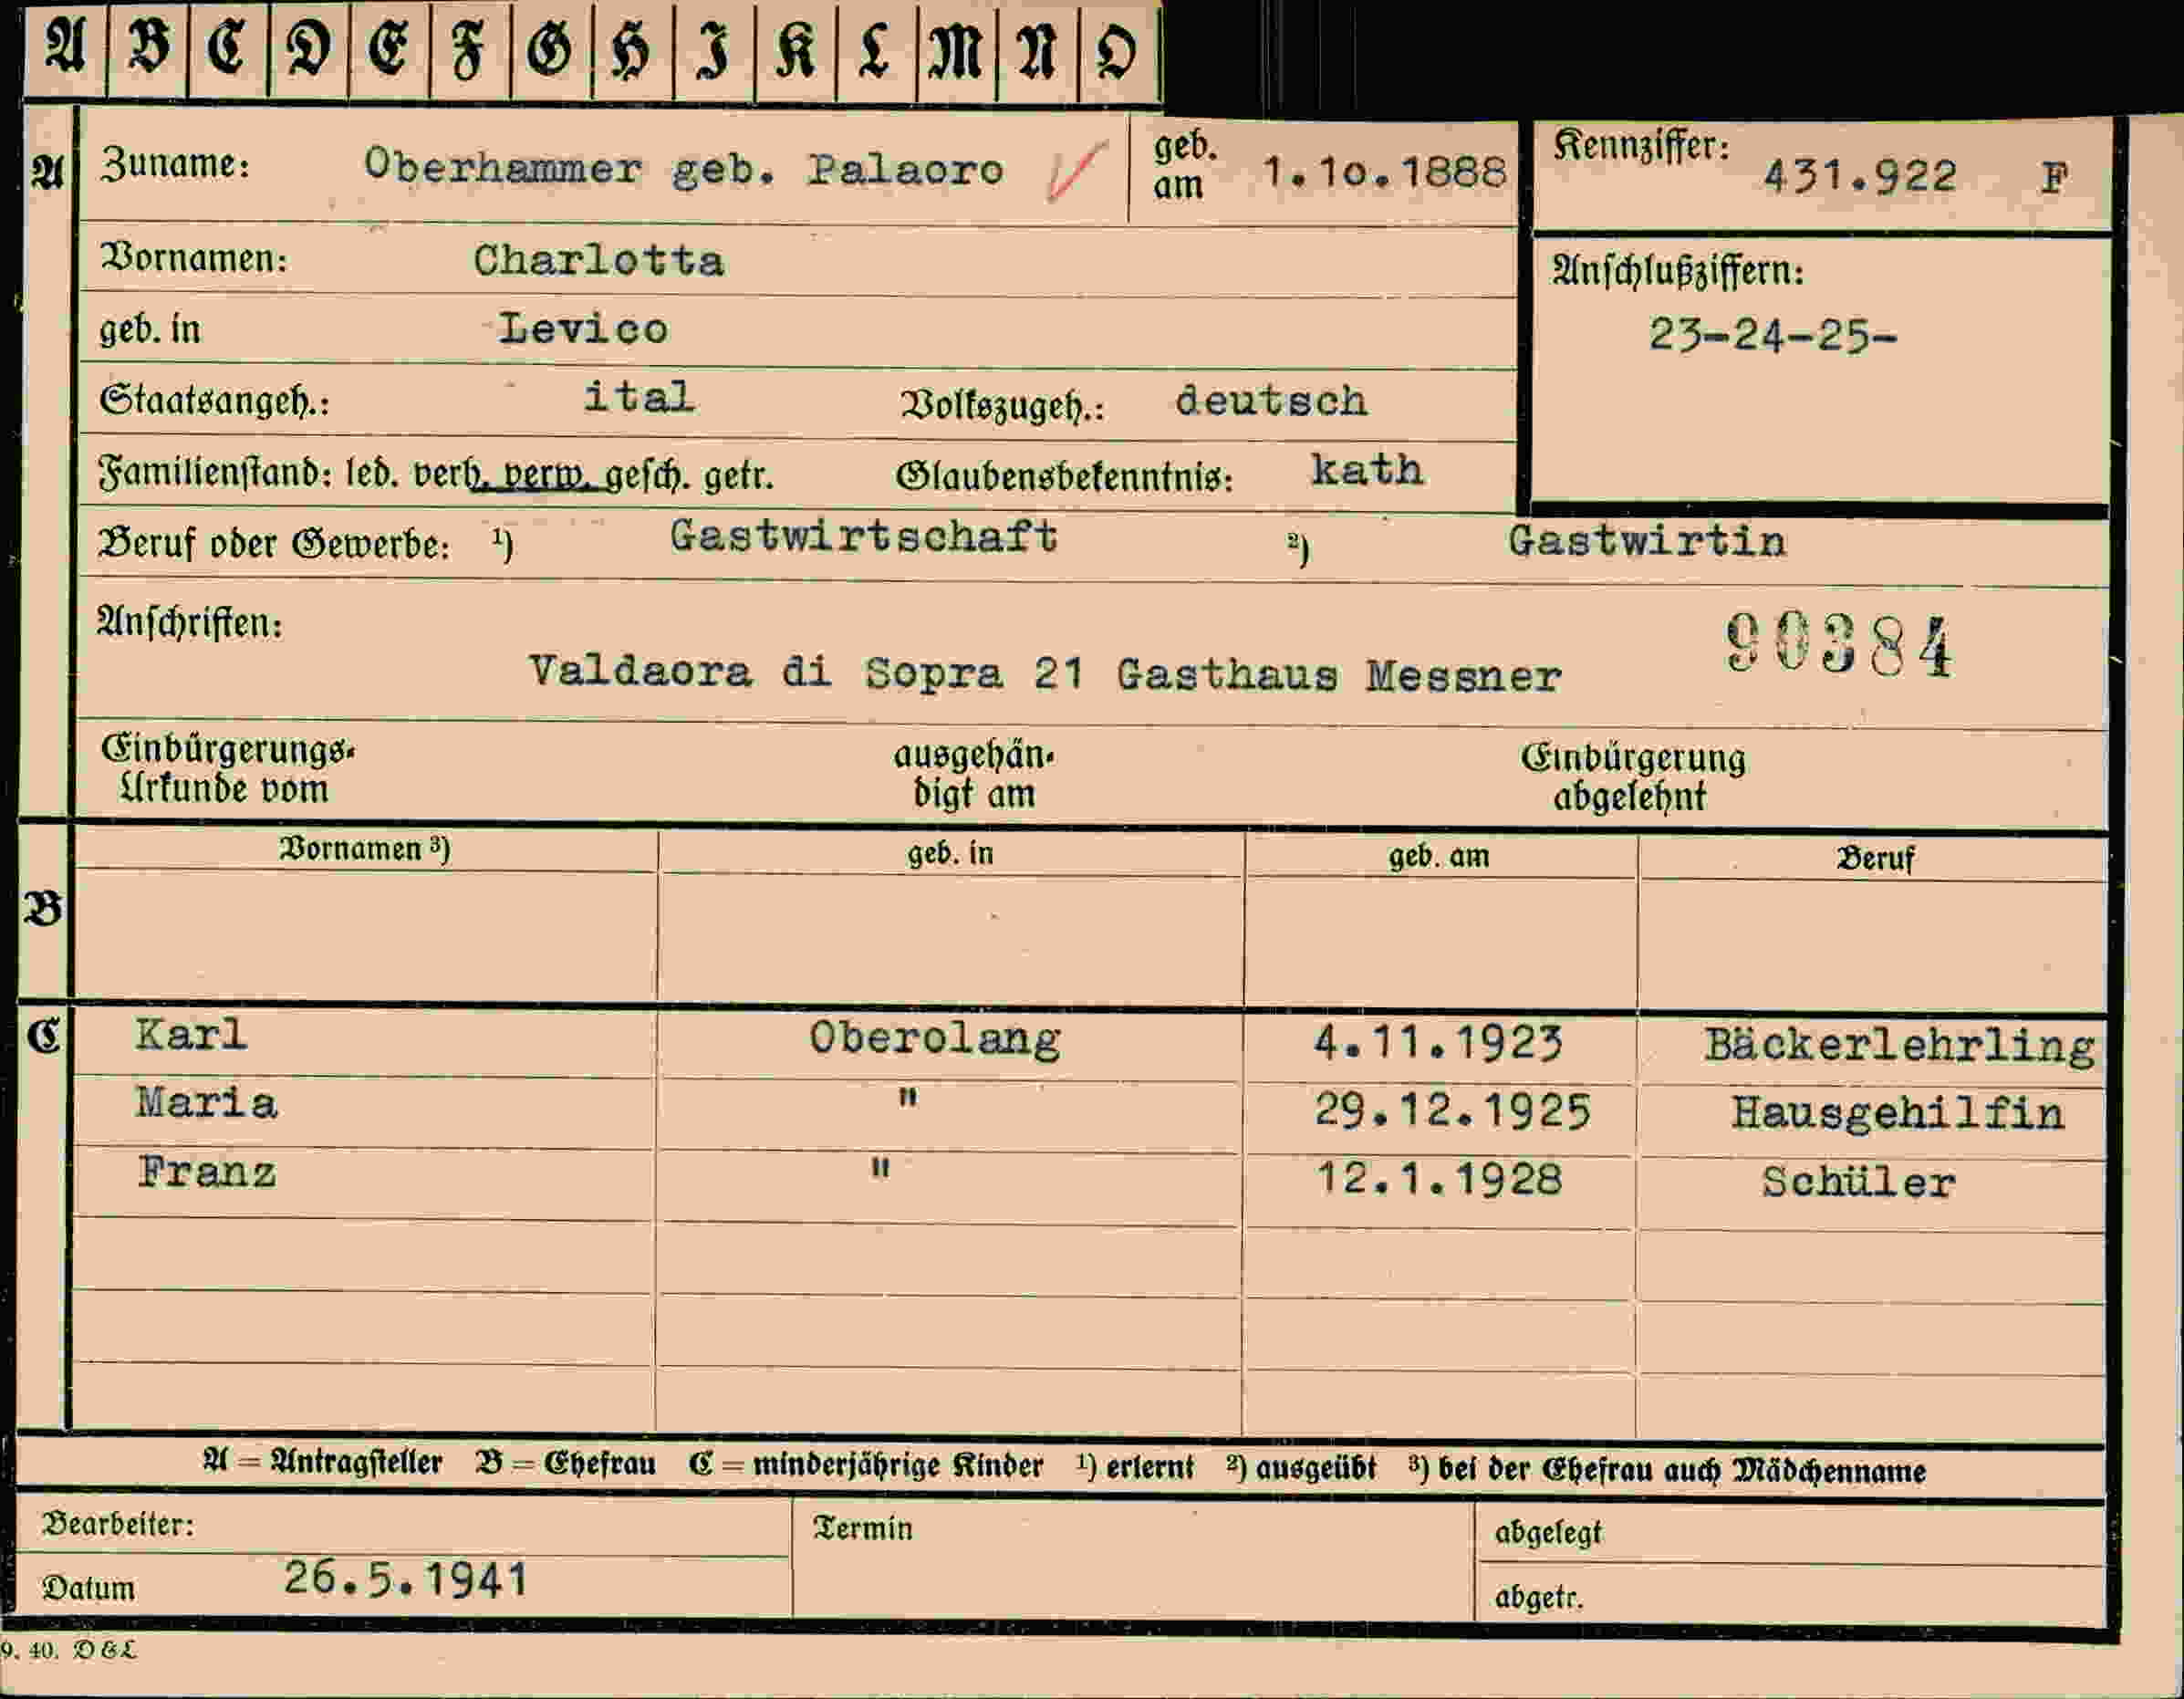 A B C D E F G H I K L M N O
A Zuname: Oberhammer geb. Palaoro geb. am 1.10.1888 Kennziffer: 431.922 F
Vornamen: Charlotta
Anschlußziffern:
geb. in Levico
23-24-25-
Staatsangeh.: ital Volkszugeh.: deutsch
Familienstand: led. verh. verw. gesch. getr. Glaubensbekenntnis: kath
Beruf oder Gewerbe: ¹) Gastwirtschaft ²) Gastwirtin
Anschriften: 90384
Valdaora di Sopra 21 Gasthaus Messner
Einbürgerungs- ausgehän- Einbürgerung
Urkunde vom digt am abgelehnt
Vornamen ³) geb. in geb. am Beruf
B
C Karl Oberolang 4.11.1923 Bäckerlehrling
Maria " 29.12.1925 Hausgehilfin
Franz " 12.1.1928 Schüler
A = Antragsteller B = Ehefrau C = minderjährige Kinder ¹) erlernt ²) ausgeübt ³) bei der Ehefrau auch Mädchenname
Bearbeiter: Termin abgelegt
Datum 26.5.1941 abgetr.
9. 40. D&L